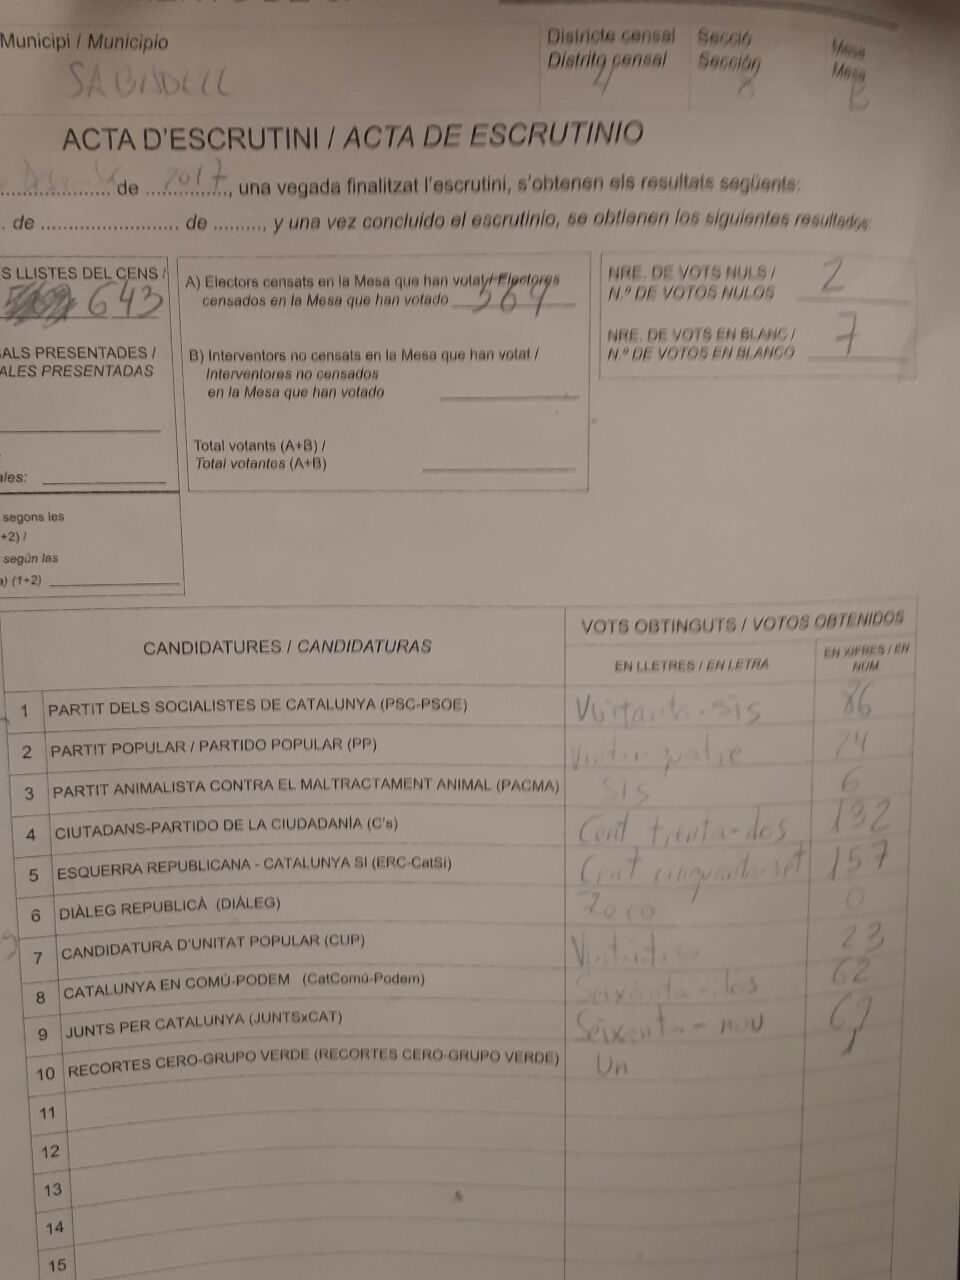 Municipi / Municipio
SABADELL
Districte censal
Distrito censal
4
Secció
Sección
8
Mesa
Mesa
B
ACTA D'ESCRUTINI / ACTA DE ESCRUTINIO
de 2017, una vegada finalitzat l'escrutini, s'obtenen els resultats següents:
. de ........................ de ........., y una vez concluido el escrutinio, se obtienen los siguientes resultados:
S LLISTES DEL CENS /
643
ALS PRESENTADES /
ALES PRESENTADAS
ales:
segons les
+2) /
según las
a) (1+2)
A) Electors censats en la Mesa que han votat / Electores
censados en la Mesa que han votado 569
B) Interventors no censats en la Mesa que han votat /
Interventores no censados
en la Mesa que han votado
Total votants (A+B) /
Total votantes (A+B)
NRE. DE VOTS NULS /
N.º DE VOTOS NULOS 2
NRE. DE VOTS EN BLANC /
N.º DE VOTOS EN BLANCO 7
CANDIDATURES / CANDIDATURAS
VOTS OBTINGUTS / VOTOS OBTENIDOS
EN LLETRES / EN LETRA
EN XIFRES / EN
NÚM.
1 PARTIT DELS SOCIALISTES DE CATALUNYA (PSC-PSOE) Vuitanta-sis 86
2 PARTIT POPULAR / PARTIDO POPULAR (PP) Vint-i-quatre 24
3 PARTIT ANIMALISTA CONTRA EL MALTRACTAMENT ANIMAL (PACMA) sis 6
4 CIUTADANS-PARTIDO DE LA CIUDADANÍA (C's) Cent trenta-dos 132
5 ESQUERRA REPUBLICANA - CATALUNYA SÍ (ERC-CatSí) Cent cinquanta-set 157
6 DIÀLEG REPUBLICÀ (DIÀLEG) Zero 0
7 CANDIDATURA D'UNITAT POPULAR (CUP) 23
8 CATALUNYA EN COMÚ-PODEM (CatComú-Podem) Seixanta-dos 62
9 JUNTS PER CATALUNYA (JUNTSxCAT) Seixanta-nou 69
10 RECORTES CERO-GRUPO VERDE (RECORTES CERO-GRUPO VERDE) Un
11
12
13
14
15